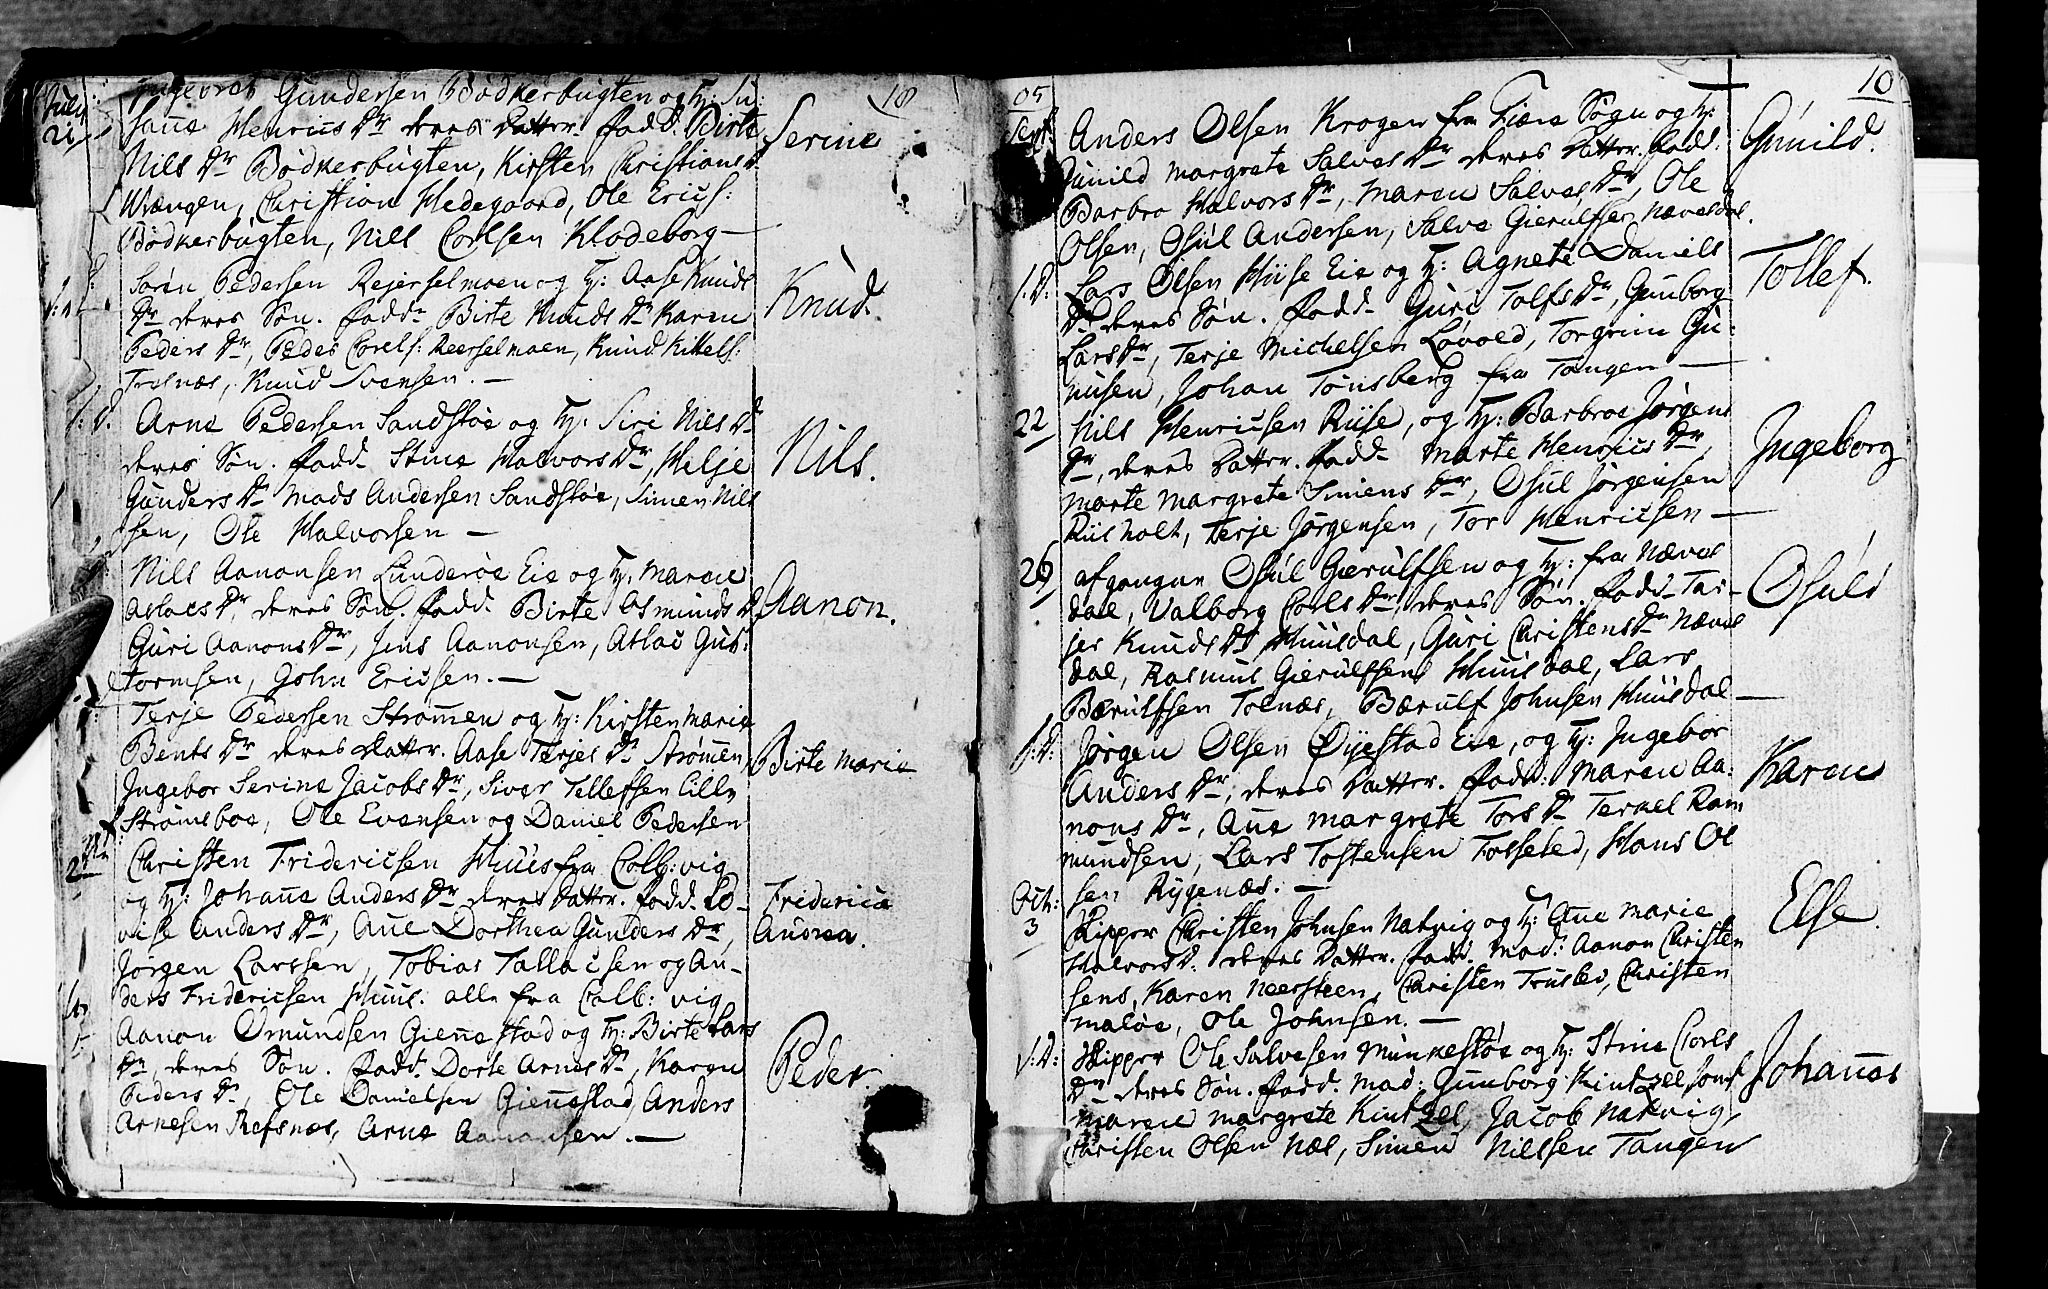 18
July
21
Ingebret Gundersen Bødkerbugten og Hj: Su-
sanne Henrics Dr deres Datter. fadd. Birte
Nils Dr Bødkerbugten, Kirsten Christians Dr
Wrængen, Christian Hedegaard, Ole Erics:
Bødkerbugten, Nils Carlsen Klodeborg —
Serine
Søren Pedersen Rejerselmoen og Hj: Aase Knuds
Dr deres Søn. fadd. Birte Knuds Dr Karen
Peders Dr, Peder Carels: Reerselmoen, Knud Kittels:
Trosnæs, Knud Svensen. —
Knud.
s: D.
Arne Pedersen Sandstøe og Hj: Siri Nils Dr
deres Søn. fadd. Stine Halvors Dr, Helje
Gunders Dr Mads Andersen Sandstøe, Simen Nils
sen, Ole Halvorsen —
Nils.
Nils Aanonsen Lunderøe Eie og Hj: Maren
Aslacs Dr, deres Søn. fadd. Birte Asmunds Dr
Guri Aanons Dr, Jens Aanonsen, Aslac Gut-
tormsen, John Ericsen. —
Aanon.
Terje Pedersen Strømen og Hj: Kirsten Marie
Bents Dr deres Datter. Aase Terjes Dr Strømen,
Ingebor Serine Jacobs Dr, Siver Tellefsen Lille
Strømsboe, Ole Evensen og Daniel Pedersen
Birte Marie
2
Christen Fridericsen Huus fra Colb: vig
og Hj: Johanne Anders Dr deres Datter. fadd. Lo-
vise Anders Dr, Ane Dorthea Gunders Dr,
Jørgen Larssen, Tobias Tallacsen og An-
ders Fridericsen Huus. alle fra Colb: vig
Friderica
Andrea.
Aanon Omundsen Giennestad og Hj: Birte Lars
Dr, deres Søn. fadd. Dorte Arnes Dr, Karen
Peders Dr, Ole Danielsen Giennestad, Anders
Arnesen Refsnæs, Arne Aanonsen. —
Peder.
05
10
Sept.
Anders Olsen Krogen fra Fiære Sogn og Hj:
Gunild Margrete Salves Dr deres Datter. fadd.
Barbro Halvors Dr, Maren Salves Dr, Ole
Olsen, Osul Andersen, Salve Gierulfsen Nævesdal.
Gunild.
s: D:
Lars Olsen Huse Eie og Hj: Agnete Daniels
Dr deres Søn. fadd. Guri Tolfs Dr, Gunborg
Lars Dr, Terje Michelsen Løvold, Torgrim Gu-
nusen, Johan Tønsberg fra Tangen —
Tollef.
22
Nils Henricsen Riise, og Hj: Barbroe Jørgens
Dr, deres Datter. fadd. Marte Henrics Dr,
Marte Margrete Simens Dr, Osul Jørgensen
Riisholt, Terje Jørgensen, Tor Henricsen —
Ingeborg
26
afgangne Osul Gierulfsen og Hj: fra Næves
dal, Valborg Carls Dr, deres Søn. fadd. Tar-
jer Knuds Dr Huusdal, Guri Christens Dr Næves
dal, Rasmus Gierulfsen Huusdal, Lars
Bærulfsen Tolnæs, Bærulf Johnsen Huusdal —
Osuld
s: D:
Jørgen Olsen Øyestad Eie, og Hj: Ingebor
Anders Dr, deres Datter. fadd: Maren Aa-
nons Dr, Ane Margrete Tors Dr Terkel Rom
mundsen, Lars Tostensen Fosseled, Hans Ol
sen Rygenæs. —
Karen
Oct:
3
Skipper Christen Johnsen Natvig og Hj: Ane Marie
Halvors D. deres Datter. fadd. Mad: Aanon Christen
sens, Karen Neersteen, Christen Trusled, Christen
Maløe, Ole Johnsen. —
Else
s: D:
Skipper Ole Salvesen Munkestøe og Hj: Stine Carls
Dr deres Søn. fadd. Mad: Gunborg Kintzel Jomf
Maren Margrete Kintzel, Jacob Natvig,
Christen Olsen Næs, Simen Nilssen Tangen
Johannes